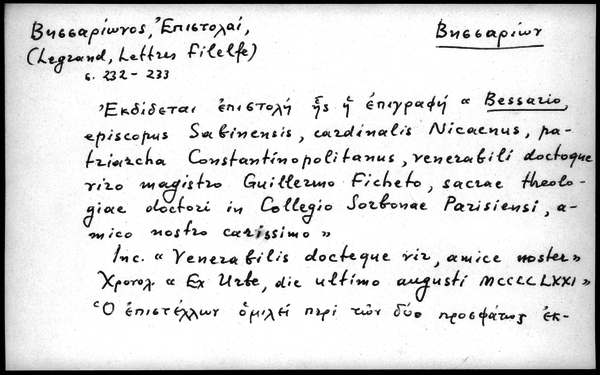 Βησσαρίωνος, Ἐπιστολαί,
Βησσαρίων
(Legrand, Lettres Filelfe)
σ. 232 - 233
Ἐκδίδεται ἐπιστολή ἧς ἡ ἐπιγραφή « Bessario,
episcopus Sabinensis, cardinalis Nicaenus, pa-
triarcha Constantinopolitanus, venerabili doctoque
viro magistro Guillermo Ficheto, sacrae theolo-
giae doctori in Collegio Sorbonae Parisiensi, a-
mico nostro carissimo »
Inc. « Venerabilis docteque vir, amice noster »
Χρονολ. « Ex Urbe, die ultimo augusti MCCCCLXXI »
Ὁ ἐπιστέλλων ὁμιλεῖ περί τῶν δύο προσφάτως ἐκ-